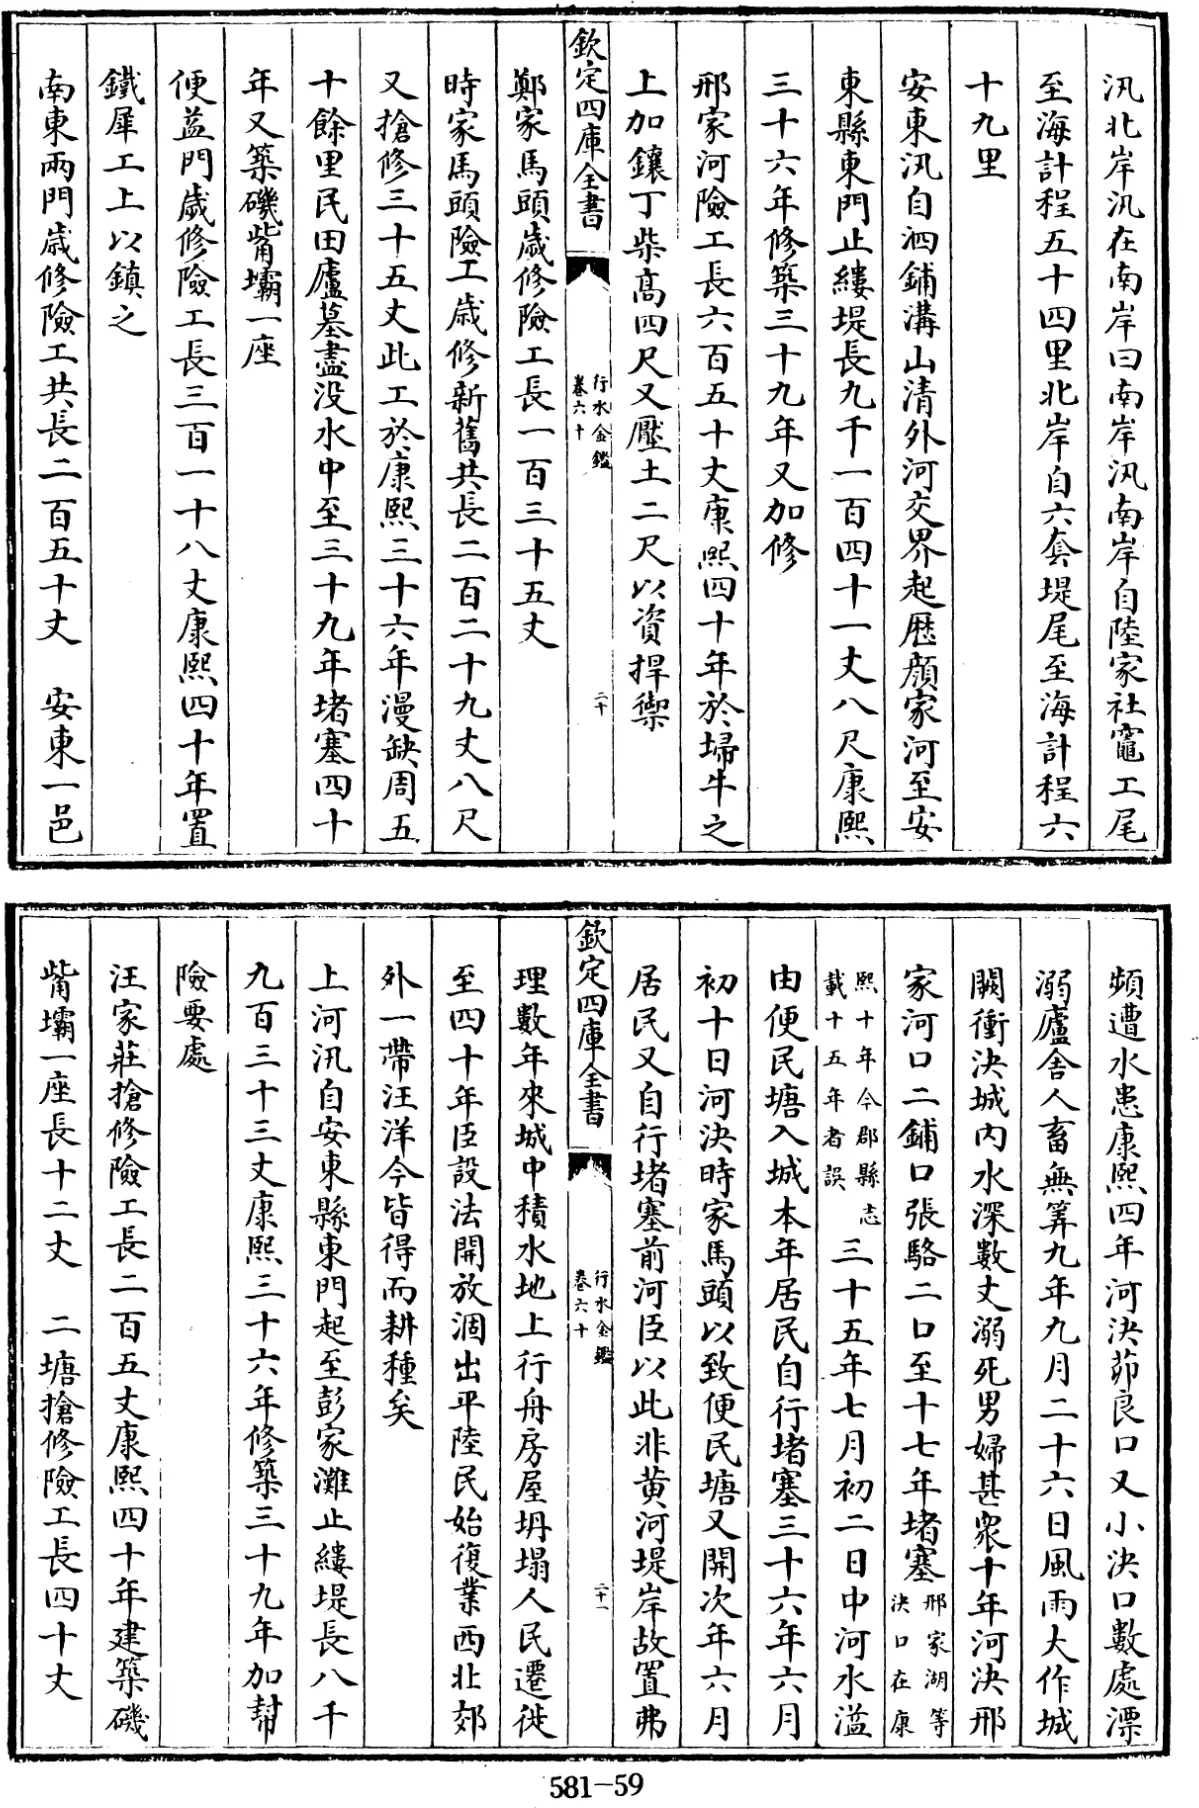 汛北岸汛在南岸曰南岸汛南岸自陸家社竈工尾
至海計程五十四里北岸自六套堤尾至海計程六
十九里
安東汛自泗鋪溝山清外河交界起歴顔家河至安
東縣東門止縷堤長九千一百四十一丈八尺康熙
三十六年修築三十九年又加修
邢家河險工長六百五十丈康熙四十年於埽牛之
上加鑲丁柴高四尺又壓土二尺以資捍禦
欽定四庫全書
行水金鑑
卷六十
二十
鄭家馬頭歲修險工長一百三十五丈
時家馬頭險工歲修新舊共長二百二十九丈八尺
又搶修三十五丈此工於康熙三十六年漫缺周五
十餘里民田廬墓盡没水中至三十九年堵塞四十
年又築磯觜壩一座
便益門歲修險工長三百一十八丈康熙四十年置
鐵犀工上以鎮之
南東兩門歲修險工共長二百五十丈　安東一邑
頻遭水患康熙四年河決茆良口又小決口數處漂
溺廬舍人畜無筭九年九月二十六日風雨大作城
闕衝決城内水深數丈溺死男婦甚衆十年河決邢
家河口二鋪口張駱二口至十七年堵塞邢家湖等決口在康
熙十年今郡縣志載十五年者誤三十五年七月初二日中河水溢
由便民塘入城本年居民自行堵塞三十六年六月
初十日河決時家馬頭以致便民塘又開次年六月
居民又自行堵塞前河臣以此非黄河堤岸故置弗
欽定四庫全書
行水金鑑
卷六十
二十一
理數年來城中積水地上行舟房屋坍塌人民遷徙
至四十年臣設法開放涸出平陸民始復業西北郊
外一帶汪洋今皆得而耕種矣
上河汛自安東縣東門起至彭家灘止縷堤長八千
九百三十三丈康熙三十六年修築三十九年加幇
險要處
汪家莊搶修險工長二百五丈康熙四十年建築磯
觜壩一座長十二丈　二塘搶修險工長四十丈
581-59